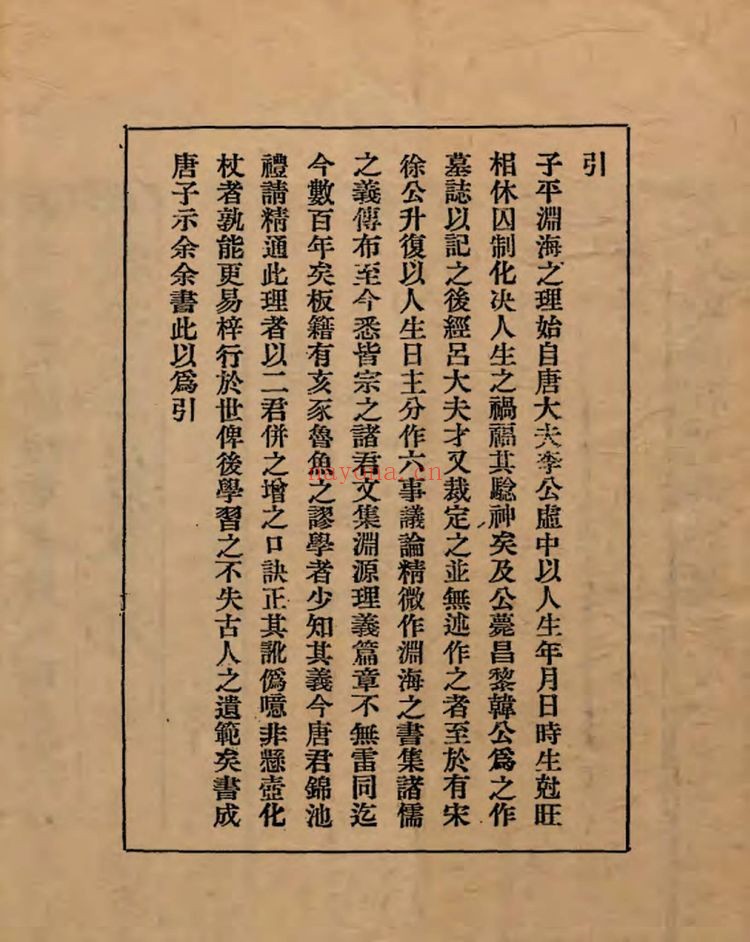 引
子平淵海之理始自唐大夫李公虛中以人生年月日時生尅旺
相休囚制化決人生之禍福其驗神矣及公薨昌黎韓公爲之作
墓誌以記之後經呂大夫才又裁定之並無述作之者至於有宋
徐公升復以人生日主分作六事議論精微作淵海之書集諸儒
之義傳布至今悉皆宗之諸君文集淵源理義篇章不無雷同迄
今數百年矣板籍有亥豕魯魚之謬學者少知其義今唐君錦池
禮請精通此理者以二君併之增之口訣正其訛僞噫非懸壺化
杖者孰能更易梓行於世俾後學習之不失古人之遺範矣書成
唐子示余余書此以爲引
nayona.cn